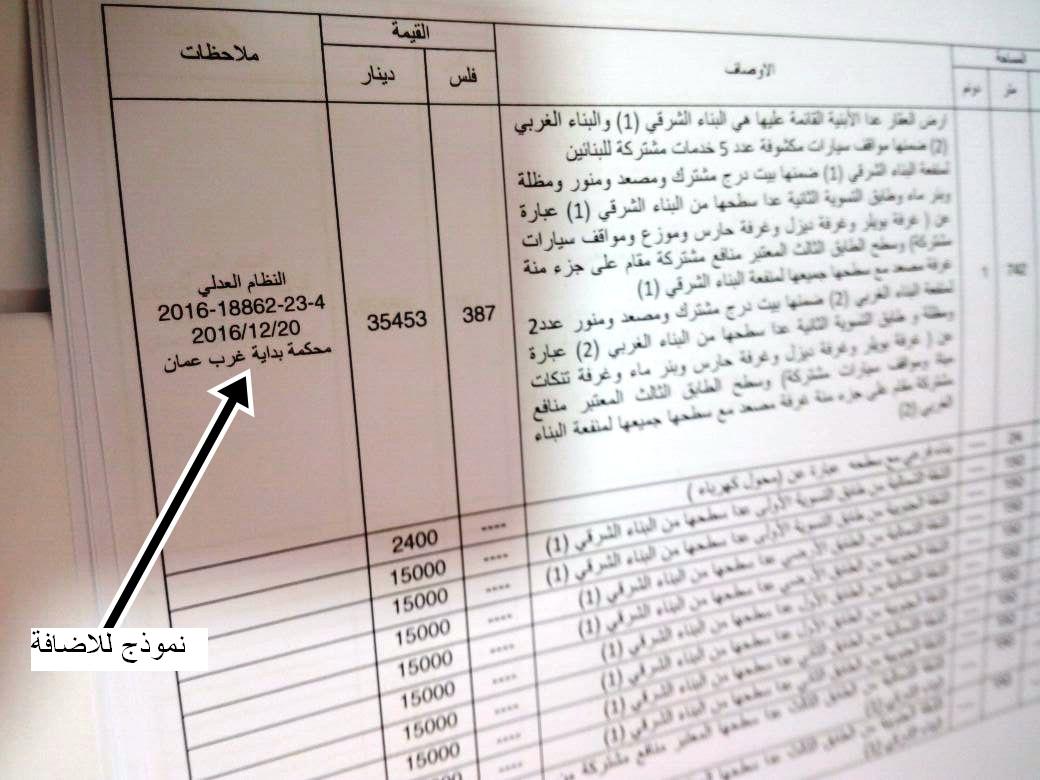 ملاحظات
القيمة
دينار
فلس
الاوصاف
المساحة
دونم
متر
ارض العقار عدا الأبنية القائمة عليها هي البناء الشرقي (1) والبناء الغربي
(2) ضمنها مواقف سيارات مكشوفة عدد 5 خدمات مشتركة للبنائين
لمنفعة البناء الشرقي (1) ضمنها بيت درج مشترك ومصعد ومنور ومظلة
وبئر ماء وطابق التسوية الثانية عدا سطحها من البناء الشرقي (1) عبارة
عن ( غرفة بويلر وغرفة ديزل وغرفة حارس وموزع ومواقف سيارات
مشتركة) وسطح الطابق الثالث المعتبر منافع مشتركة مقام على جزء منة
غرفة مصعد مع سطحها جميعها لمنفعة البناء الشرقي (1)
لمنفعة البناء الغربي (2) ضمنها بيت درج مشترك ومصعد ومنور عدد2
ومظلة و طابق التسوية الثانية عدا سطحها من البناء الغربي (2) عبارة
عن ( غرفة بويلر وغرفة ديزل وغرفة حارس وبئر ماء وغرفة تنكات
مية ومواقف سيارات مشتركة) وسطح الطابق الثالث المعتبر منافع
مشتركة مقام على جزء منة غرفة مصعد مع سطحها جميعها لمنفعة البناء
الغربي (2)
1
742
387
35453
النظام العدلي
2016-18862-23-4
2016/12/20
محكمة بداية غرب عمان
بناء فرعي مع سطحه عبارة عن (محول كهرباء )
---- 2400
الشقة الشمالية من طابق التسوية الأولى عدا سطحها من البناء الشرقي (1)
---- 15000
الشقة الجنوبية من طابق التسوية الأولى عدا سطحها من البناء الشرقي (1)
---- 15000
الشقة الشمالية من الطابق الأرضي عدا سطحها من البناء الشرقي (1)
---- 15000
الشقة الجنوبية من الطابق الأرضي عدا سطحها من البناء الشرقي (1)
---- 15000
عدا سطحها من البناء الشرقي (1)
---- 15000
عدا سطحها من البناء الشرقي (1)
---- 15000
---- 15000
نموذج للاضافة